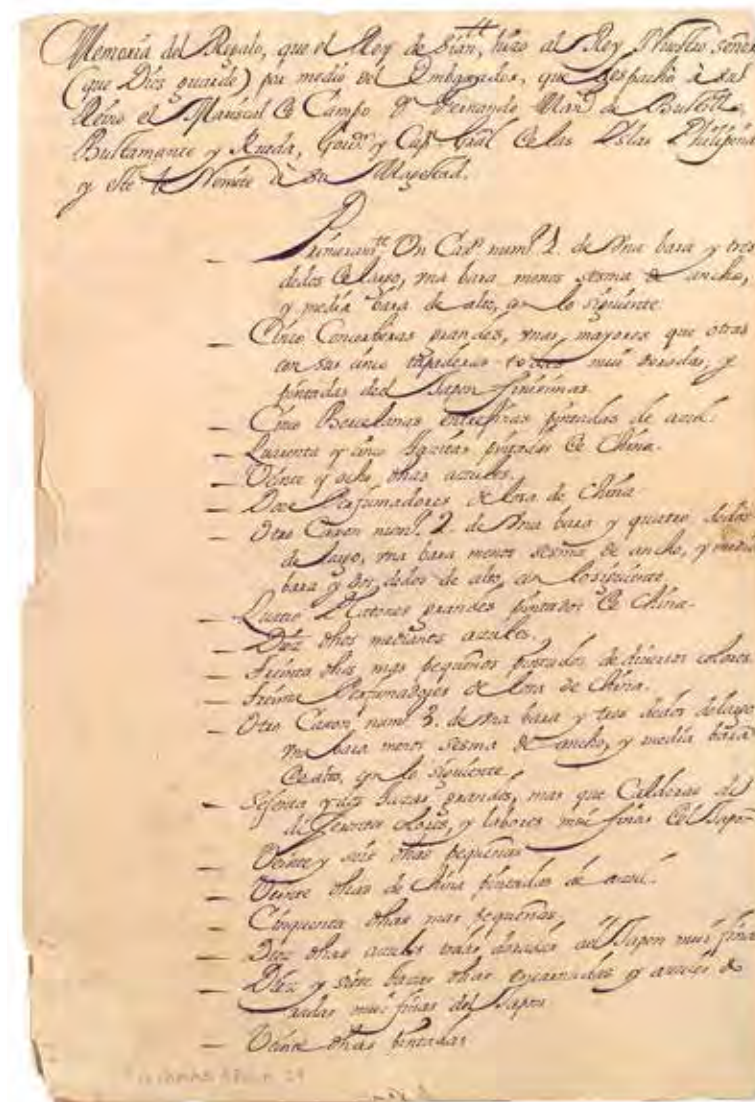 Memoria del Regalo, que el Rey de Sian, hizo al Rey Nuestro señor
(que Dios guarde) por medio del Embaxador, que despachò à su
Reino el Mariscal de Campo Dn Fernando Manl de Bustillo,
Bustamante y Rueda, Govr y Capn Gral de las Islas Philipinas
y este de Nombre de su Magestad.
Primeramte Un Caxn numo 1. de Vna bara y tres
dedos de largo, vna bara menos sesma de ancho,
y media bara de alto, con lo siguiente
Cinco Conserberas grandes, vnas mayores que otras
con sus cinco tapaderas todas mui doradas, y
pintadas del Japon finissimas
Cinco Porcelanas entrefinas pintadas de azul.
Quarenta y cinco pintadas de China.
Veinte y ocho otras azules.
Doce Perfumadores de losa de China
Otro Caxon numo 2. de Vna bara y quatro dedos
de largo, vna bara menos sesma de ancho, y media
bara y dos dedos de alto, con lo siguiente
Quatro Platones grandes pintados de China.
Diez otros medianos azules.
Treinta otros mas pequeños pintados de diversos colores
Treinta Perfumadores de losa de China.
Otro Caxon numo 3. de Vna bara y tres dedos de largo
vna bara menos sesma de ancho, y media bara
de alto, con lo siguiente
y dos tazas grandes, mas que Calderas de
diferentes colores, y labores mui finas del Japon
Veinte y seis otras pequeñas
Veinte otras de China pintadas de azul.
Cinquenta otras mas pequeñas.
Diez otras azules doradas del Japon mui finas
Diez y siete otras encarnadas y azules
mui finas del Japon
Veinte otras pintadas